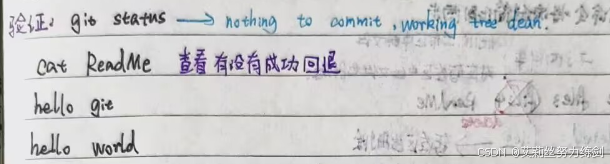 验证: git status → nothing to commit, working tree clean.
cat ReadMe 查看有没有成功回退
hello git
hello world
CSDN @艾莉丝努力练剑